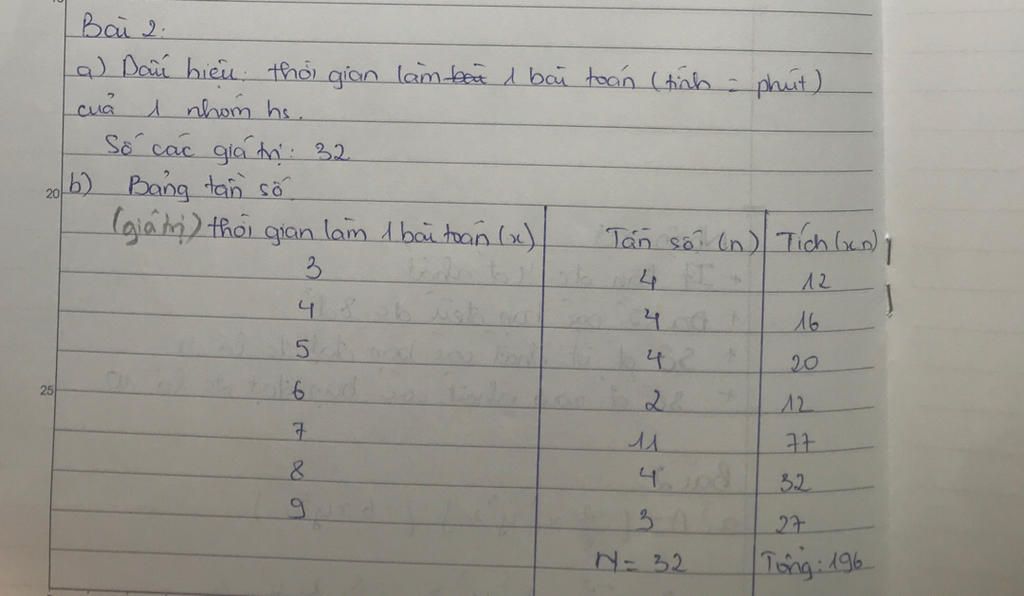 Bài 2:
a) Dấu hiệu: thời gian làm bài 1 bài toán (tính = phút)
của 1 nhóm hs.
Số các giá trị: 32
20 b) Bảng tần số
(giá trị) thời gian làm 1 bài toán (x) Tần số (n) Tích (x.n)
3 4 12
4 4 16
5 4 20
25 6 2 12
7 11 77
8 4 32
9 3 27
N = 32 Tổng: 196